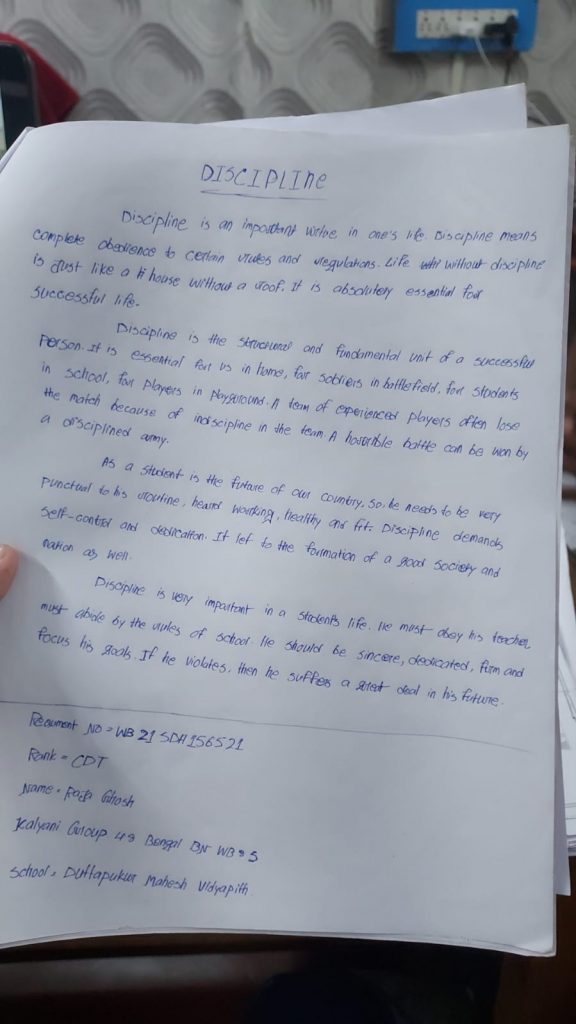 DISCIPLINE
Discipline is an important virtue in one's life. Discipline means
complete obedience to certain rules and regulations. Life without discipline
is Just like a house without a roof. It is absolutely essential for
successful life.
Discipline is the structural and fundamental unit of a successful
Person. It is essential for us in home, for soldiers in battlefield, for students
in school, for players in playground. A team of experienced players often lose
the match because of indiscipline in the team. A horrible battle can be won by
a disciplined army.
As a student is the future of our country, so he needs to be very
Punctual to his routine, heard working, healthy and fit. Discipline demands
self-control and dedication. It let to the formation of a good society and
nation as well.
Discipline is very important in a student's life. He must obey his teacher,
must abide by the rules of school. He should be sincere, dedicated, firm and
focus his goals. If he violates, then he suffers a great deal in his future.
NO = WB 21 SDA 156521
Rank = CDT
Name = Ghosh
Kalyani Group 48 Bengal BN WB
School, Duttapukur Mahesh Vidyapith